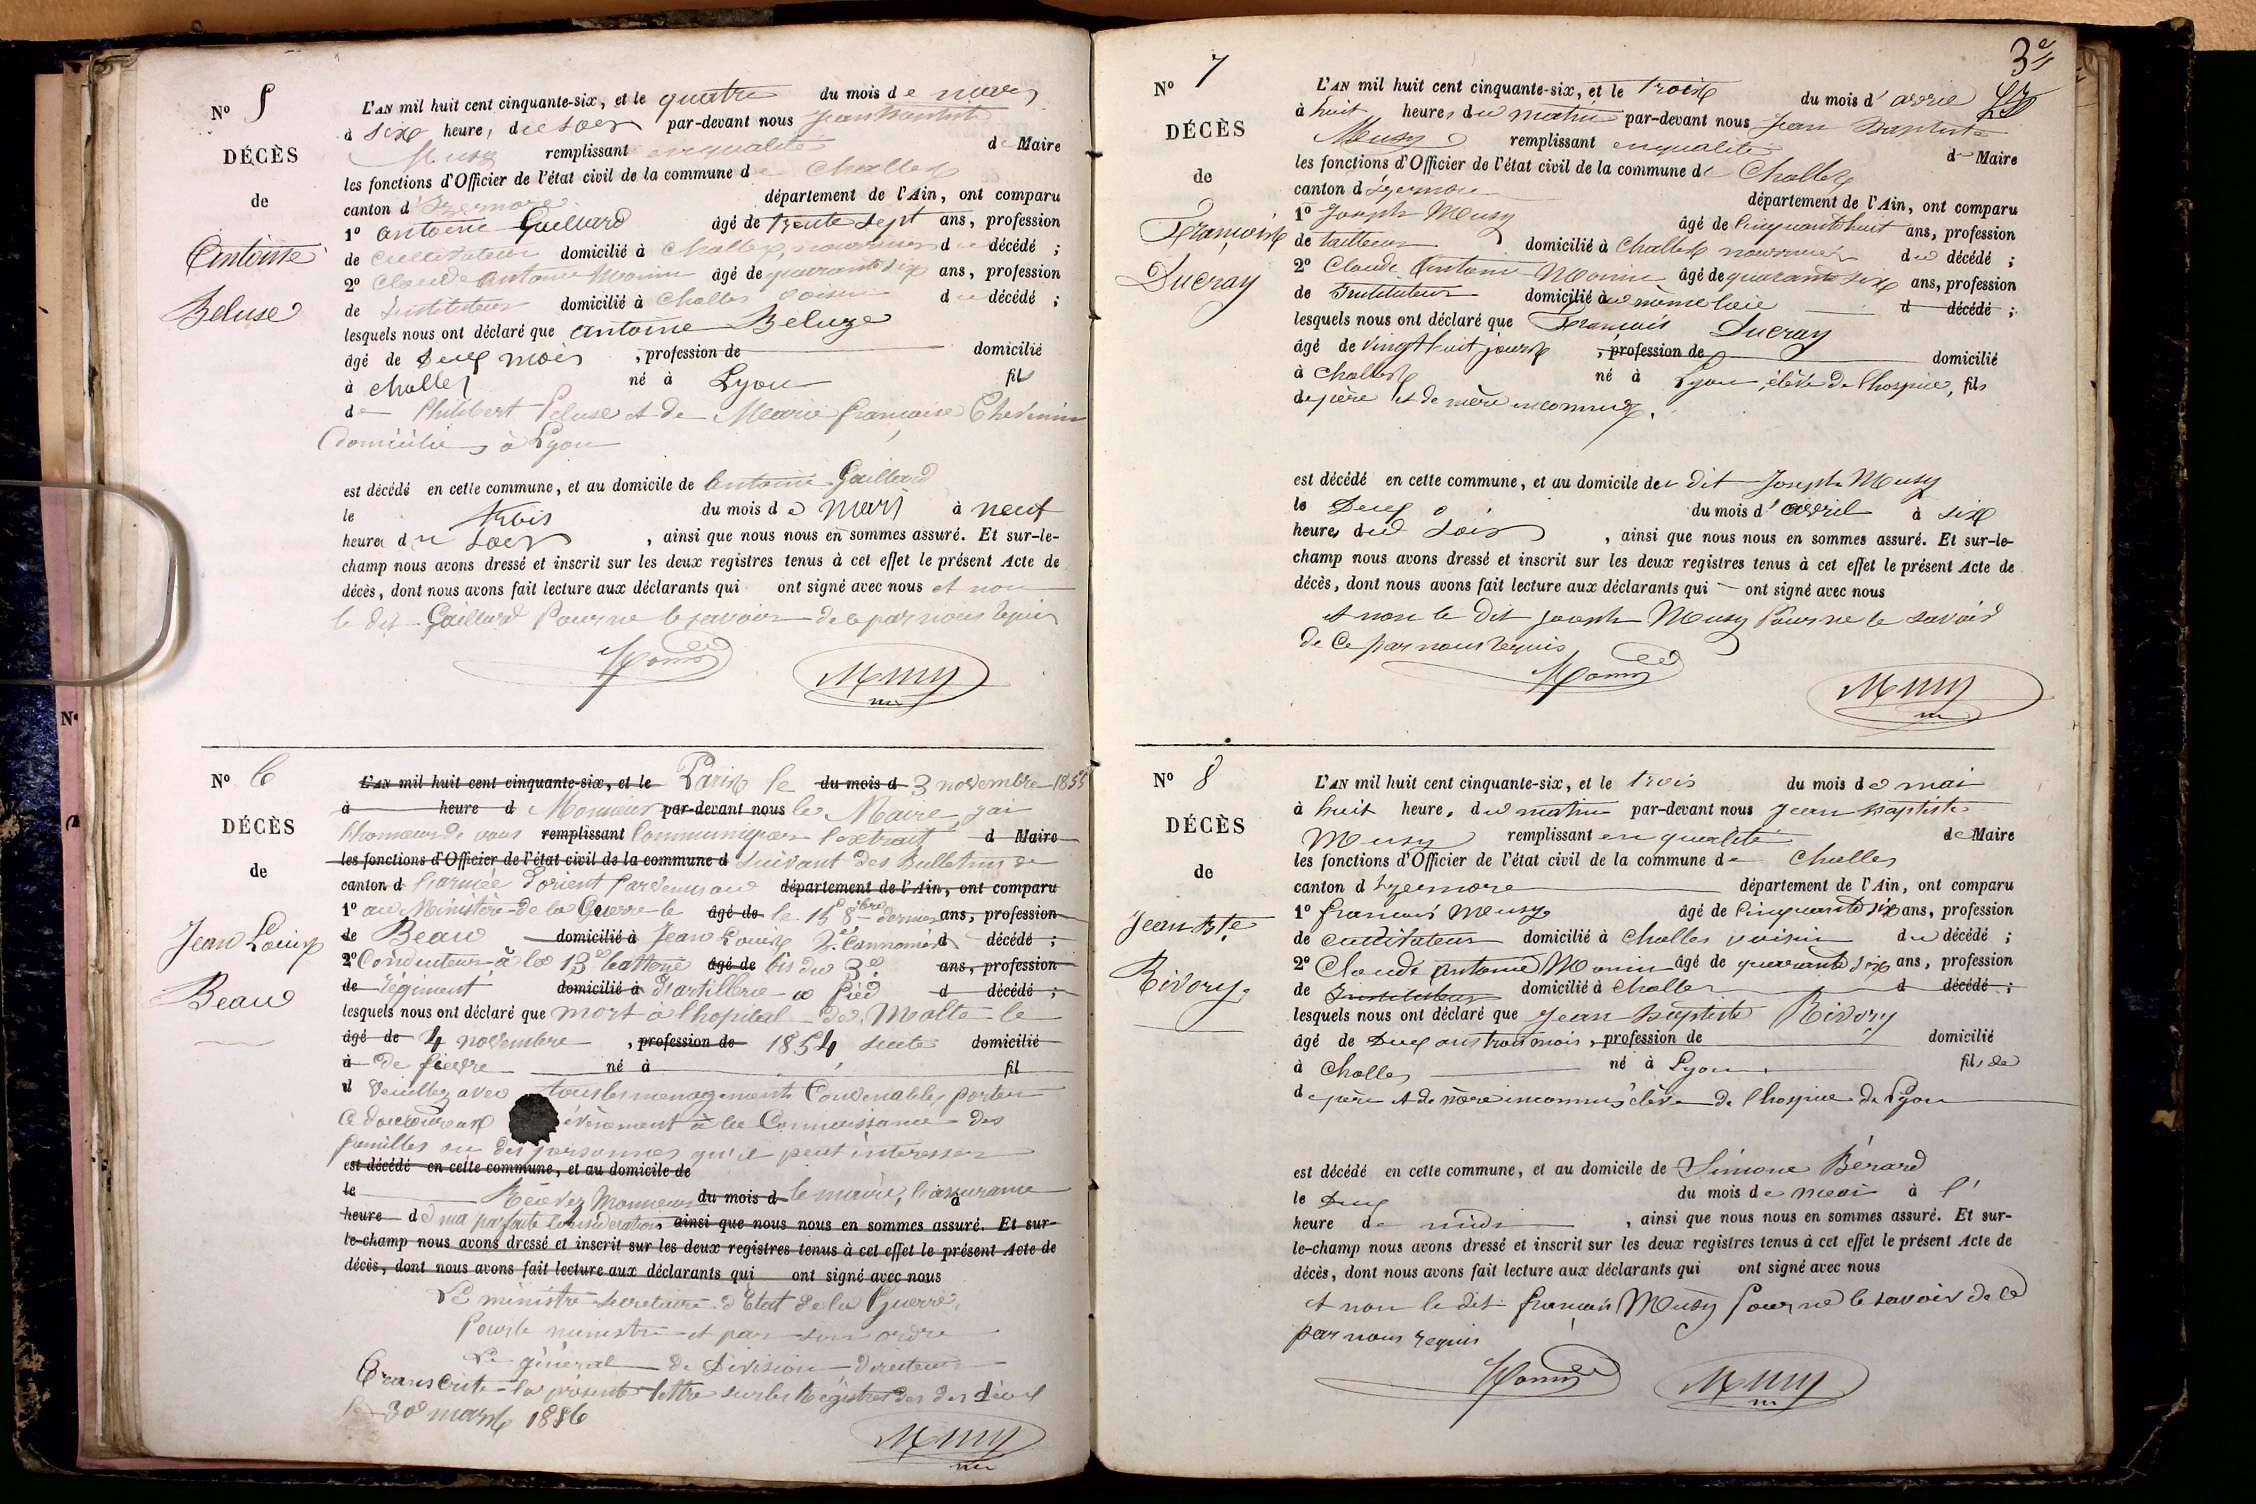 N° 5
DÉCÈS
de
Antoine
Beluse
L'AN mil huit cent cinquante-six, et le quatre du mois de mars
à six heure, du soir par-devant nous Jean Baptiste
Musy remplissant en qualité de Maire
les fonctions d'Officier de l'état civil de la commune de Challes
canton d'Izernore département de l'Ain, ont comparu
1° Antoine Gaillard âgé de trente sept ans, profession
de cultivateur domicilié à Challes, nourricier du décédé ;
2° Claude Antoine Monin âgé de quarante six ans, profession
de Instituteur domicilié à Challes voisin du décédé ;
lesquels nous ont déclaré que Antoine Beluze
âgé de Deux mois , profession de domicilié
à Challes né à Lyon fils
de Philibert Beluse et de Marie françoise
Domiciliés à Lyon
est décédé en cette commune, et au domicile de Antoine Gaillard
le trois du mois de Mars à neuf
heures du soir , ainsi que nous nous en sommes assuré. Et sur-le-
champ nous avons dressé et inscrit sur les deux registres tenus à cet effet le présent Acte de
décès, dont nous avons fait lecture aux déclarants qui ont signé avec nous et non
le dit Gaillard Pour ne le savoir de ce par nous requis
Monin Musy
N° 6
DÉCÈS
de
Jean Louis
Beau
L'AN mil huit cent cinquante-six, et le Paris le du mois d 3 novembre 1855
à heure d Monsieur par-devant nous le Maire, j'ai
l'honneur de vous remplissant Communiquer l'extrait d Maire
les fonctions d'Officier de l'état civil de la commune d suivant des Bulletins de
canton d l'armée d'orient Parvenus au département de l'Ain, ont comparu
1° au Ministère de la Guerre le âgé de le 15 8bre dernier ans, profession
de Beau domicilié à Jean Louis 2e Cannonier d décédé ;
2° Conducteur à la 13e batterie âgé de bis du 3e ans, profession
de régiment domicilié à d'artillerie à Pied d décédé ;
lesquels nous ont déclaré que mort à l'hopital de Malte le
âgé de 4 novembre , profession de 1854 suite domicilié
à de fièvre né à fil
d Veuillez avec tous les menagements Convenables porter
ce douloureux évènement à la Connaissance des
familles ou des personnes qu'il peut intéresser
est décédé en cette commune, et au domicile de
le Recevez Monsieur du mois d le maire, l'assurance à
heure d de ma parfaite Considération ainsi que nous nous en sommes assuré. Et sur-
le-champ nous avons dressé et inscrit sur les deux registres tenus à cet effet le présent Acte de
décès, dont nous avons fait lecture aux déclarants qui ont signé avec nous
Le ministre secretaire d'Etat de la Guerre,
Pour le ministre et par son ordre
Le général de Division directeur
Transcrite la présente lettre sur les Régistres des décès
le 30 mars 1856
Musy
3e
N° 7
DÉCÈS
de
François
Ducray
L'AN mil huit cent cinquante-six, et le trois du mois d'avril
à huit heures du matin par-devant nous Jean Baptiste
Musy remplissant en qualité de Maire
les fonctions d'Officier de l'état civil de la commune de Challes
canton d'Izernore département de l'Ain, ont comparu
1° Joseph Musy âgé de Cinquante huit ans, profession
de tailleur domicilié à Challes nourricier du décédé ;
2° Claude Antoine Monin âgé de quarante six ans, profession
de Instituteur domicilié au même lieu d décédé ;
lesquels nous ont déclaré que François Ducray
âgé de vingt huit jours , profession de domicilié
à Challes né à Lyon, élève de l'hospice, fils
de père et de mère inconnus.
est décédé en cette commune, et au domicile du dit Joseph Musy
le Deux du mois d'avril à six
heures du soir , ainsi que nous nous en sommes assuré. Et sur-le-
champ nous avons dressé et inscrit sur les deux registres tenus à cet effet le présent Acte de
décès, dont nous avons fait lecture aux déclarants qui ont signé avec nous
et non le dit joseph Musy Pour ne le savoir
de Ce par nous requis
Monin Musy
N° 8
DÉCÈS
de
Jean Bte
Rivory.
L'AN mil huit cent cinquante-six, et le trois du mois de mai
à huit heure, du matin par-devant nous Jean Baptiste
Musy remplissant en qualité de Maire
les fonctions d'Officier de l'état civil de la commune de Challes
canton d Izernore département de l'Ain, ont comparu
1° françois Musy âgé de Cinquante six ans, profession
de cultivateur domicilié à Challes voisin du décédé ;
2° Claude Antoine Monin âgé de quarante six ans, profession
de Instituteur domicilié à Challes d décédé ;
lesquels nous ont déclaré que Jean Baptiste Rivory
âgé de Deux ans trois mois , profession de domicilié
à Challes né à Lyon, fils de
de père et de mère inconnus élève de l'hospice de Lyon
est décédé en cette commune, et au domicile de Simone Bérard
le Deux du mois de mai à l'
heure de midi , ainsi que nous nous en sommes assuré. Et sur-
le-champ nous avons dressé et inscrit sur les deux registres tenus à cet effet le présent Acte de
décès, dont nous avons fait lecture aux déclarants qui ont signé avec nous
et non le dit françois Musy Pour ne le savoir de ce
par nous requis
Monin Musy